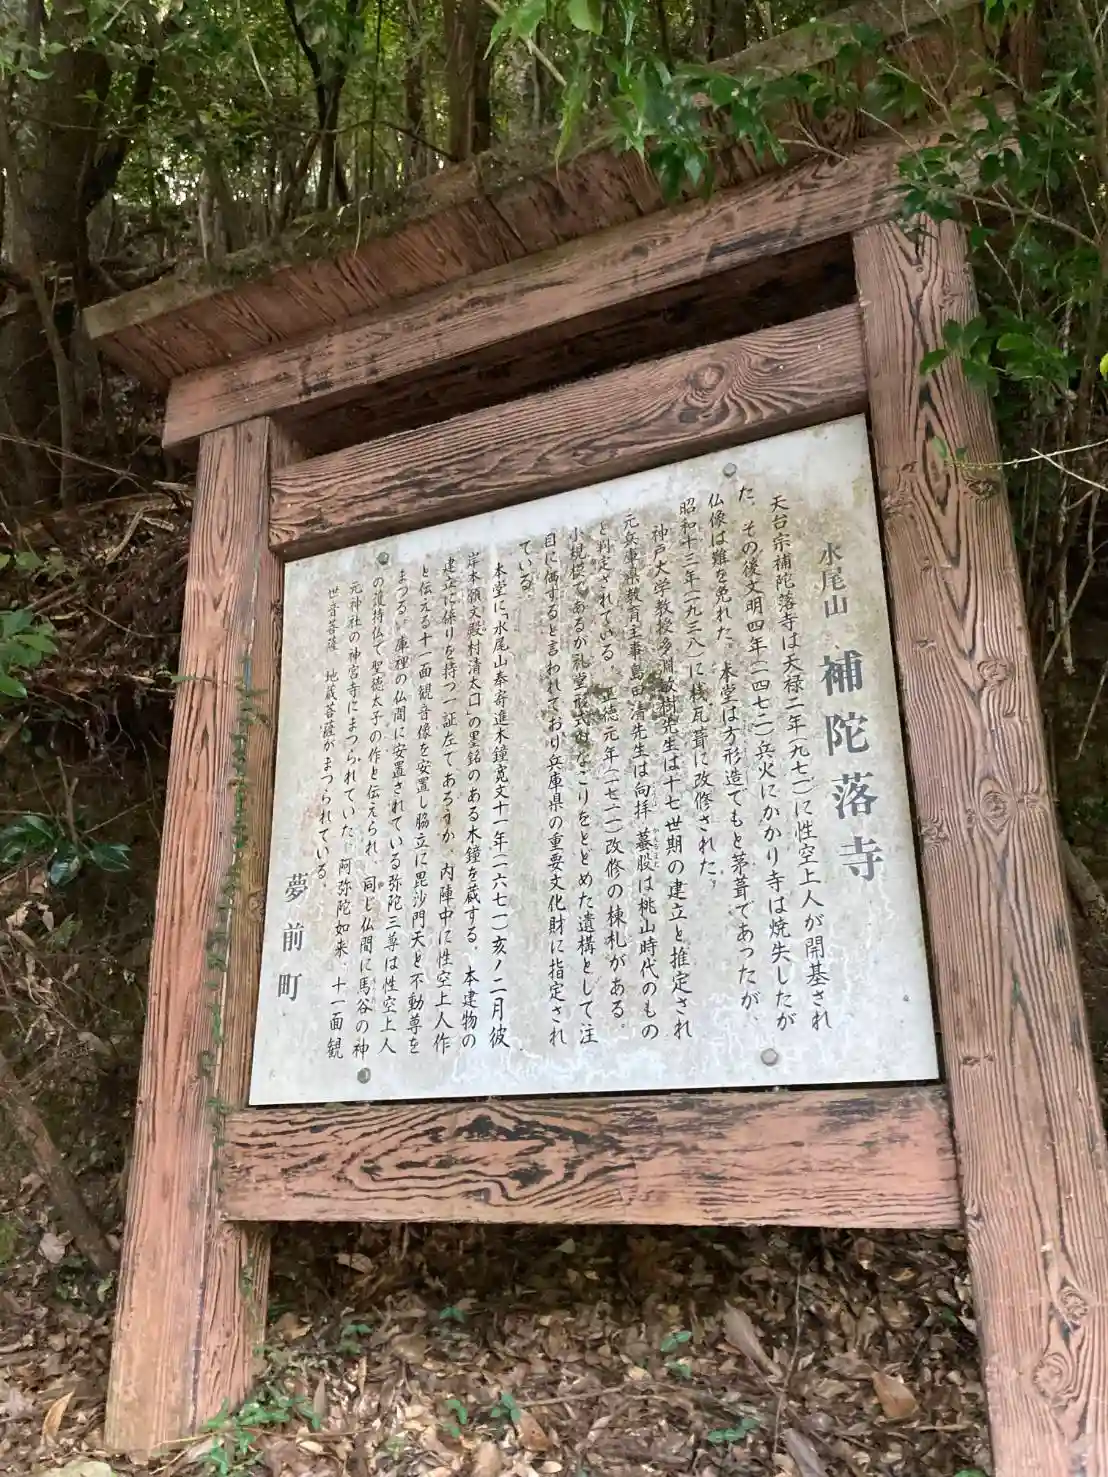 水尾山 補陀落寺
天台宗補陀落寺は天禄二年(九七一)に性空上人が開基され
た。その後文明四年(一四七二)兵火にかかり寺は焼失したが
仏像は難を免れた。本堂は方形造でもと茅葺であったが、
昭和十三年(一九三八)に桟瓦葺に改修された。
神戸大学教授多淵敏樹先生は十七世期の建立と推定され
元兵庫県教育主事島田清先生は向拝蟇股は桃山時代のもの
と判定されている。正徳元年(一七一一)改修の棟札がある。
小規模であるが礼堂形式のなごりをとどめた遺構として注
目に価すると言われており兵庫県の重要文化財に指定され
ている。
本堂に「水尾山奉寄進木鐘寛文十一年(一六七一)亥ノ二月彼
岸木願文殿村清太口」の墨銘のある木鐘を蔵する。本建物の
建立に係りを持つ一証左であろうか。内陣中に性空上人作
と伝える十一面観音像を安置し脇立に毘沙門天と不動尊を
まつる。庫裡の仏間に安置されている弥陀三尊は性空上人
の護持仏で聖徳太子の作と伝えられ、同じ仏間に馬谷の神
元神社の神宮寺にまつられていた、阿弥陀如来、十一面観
世音菩薩 地蔵菩薩がまつられている。
夢前町